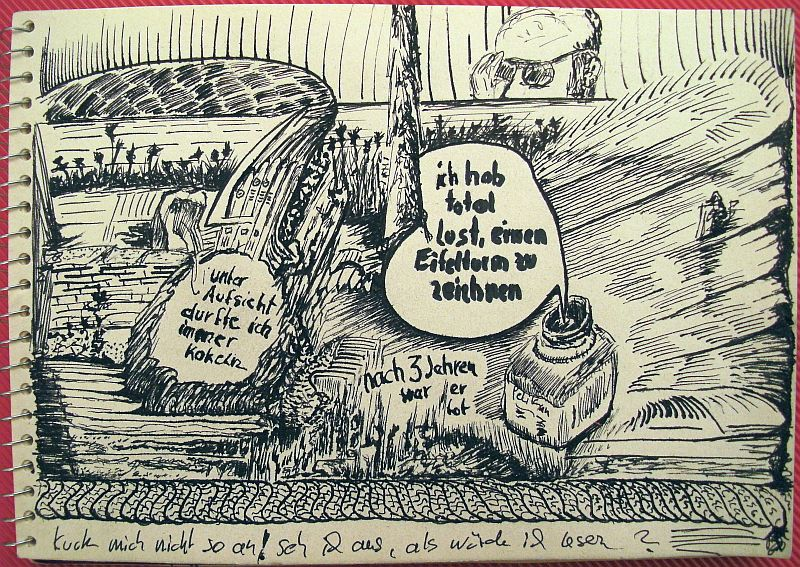 ich hab
total
Lust, einen
Eifelturm zu
zeichnen
unter
Aufsicht
durfte ich
immer
kokeln
nach 3 Jahren
war er
tot
Kuck mich nicht so an! seh ich aus, als würde ich lesen?